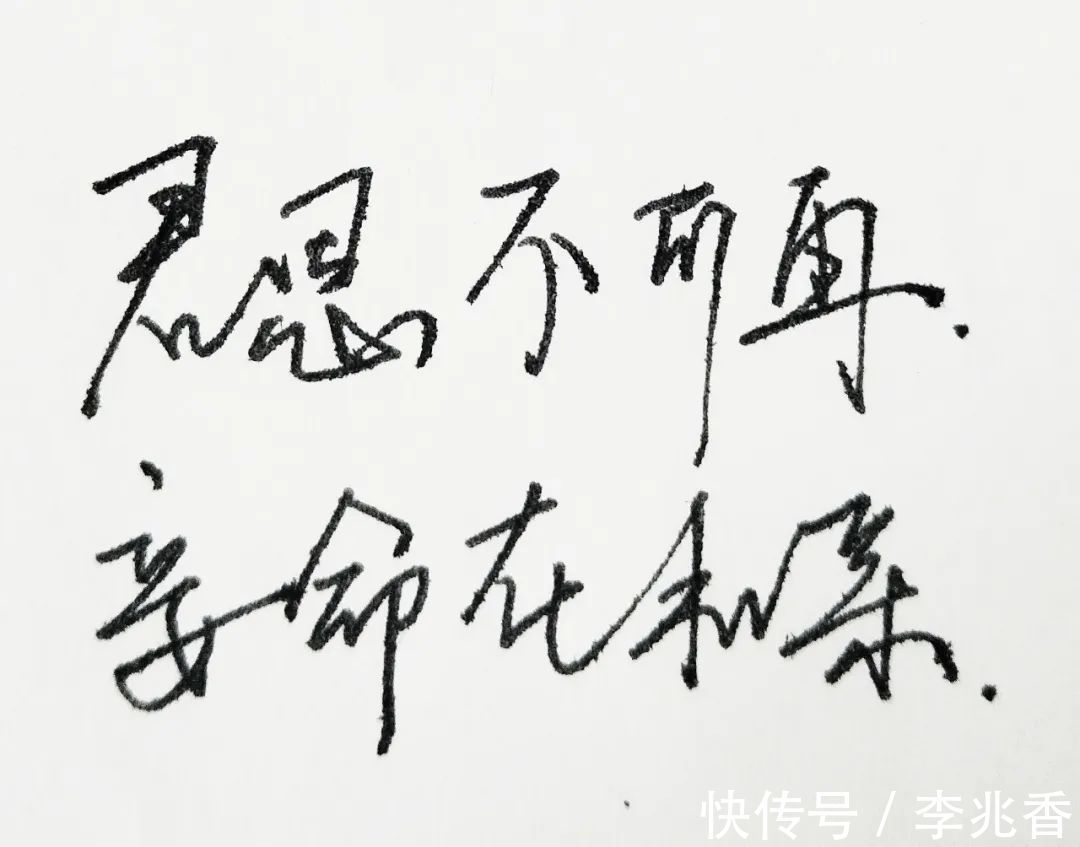 君恩不可再.
妾命在和亲.
快传号 / 李兆香